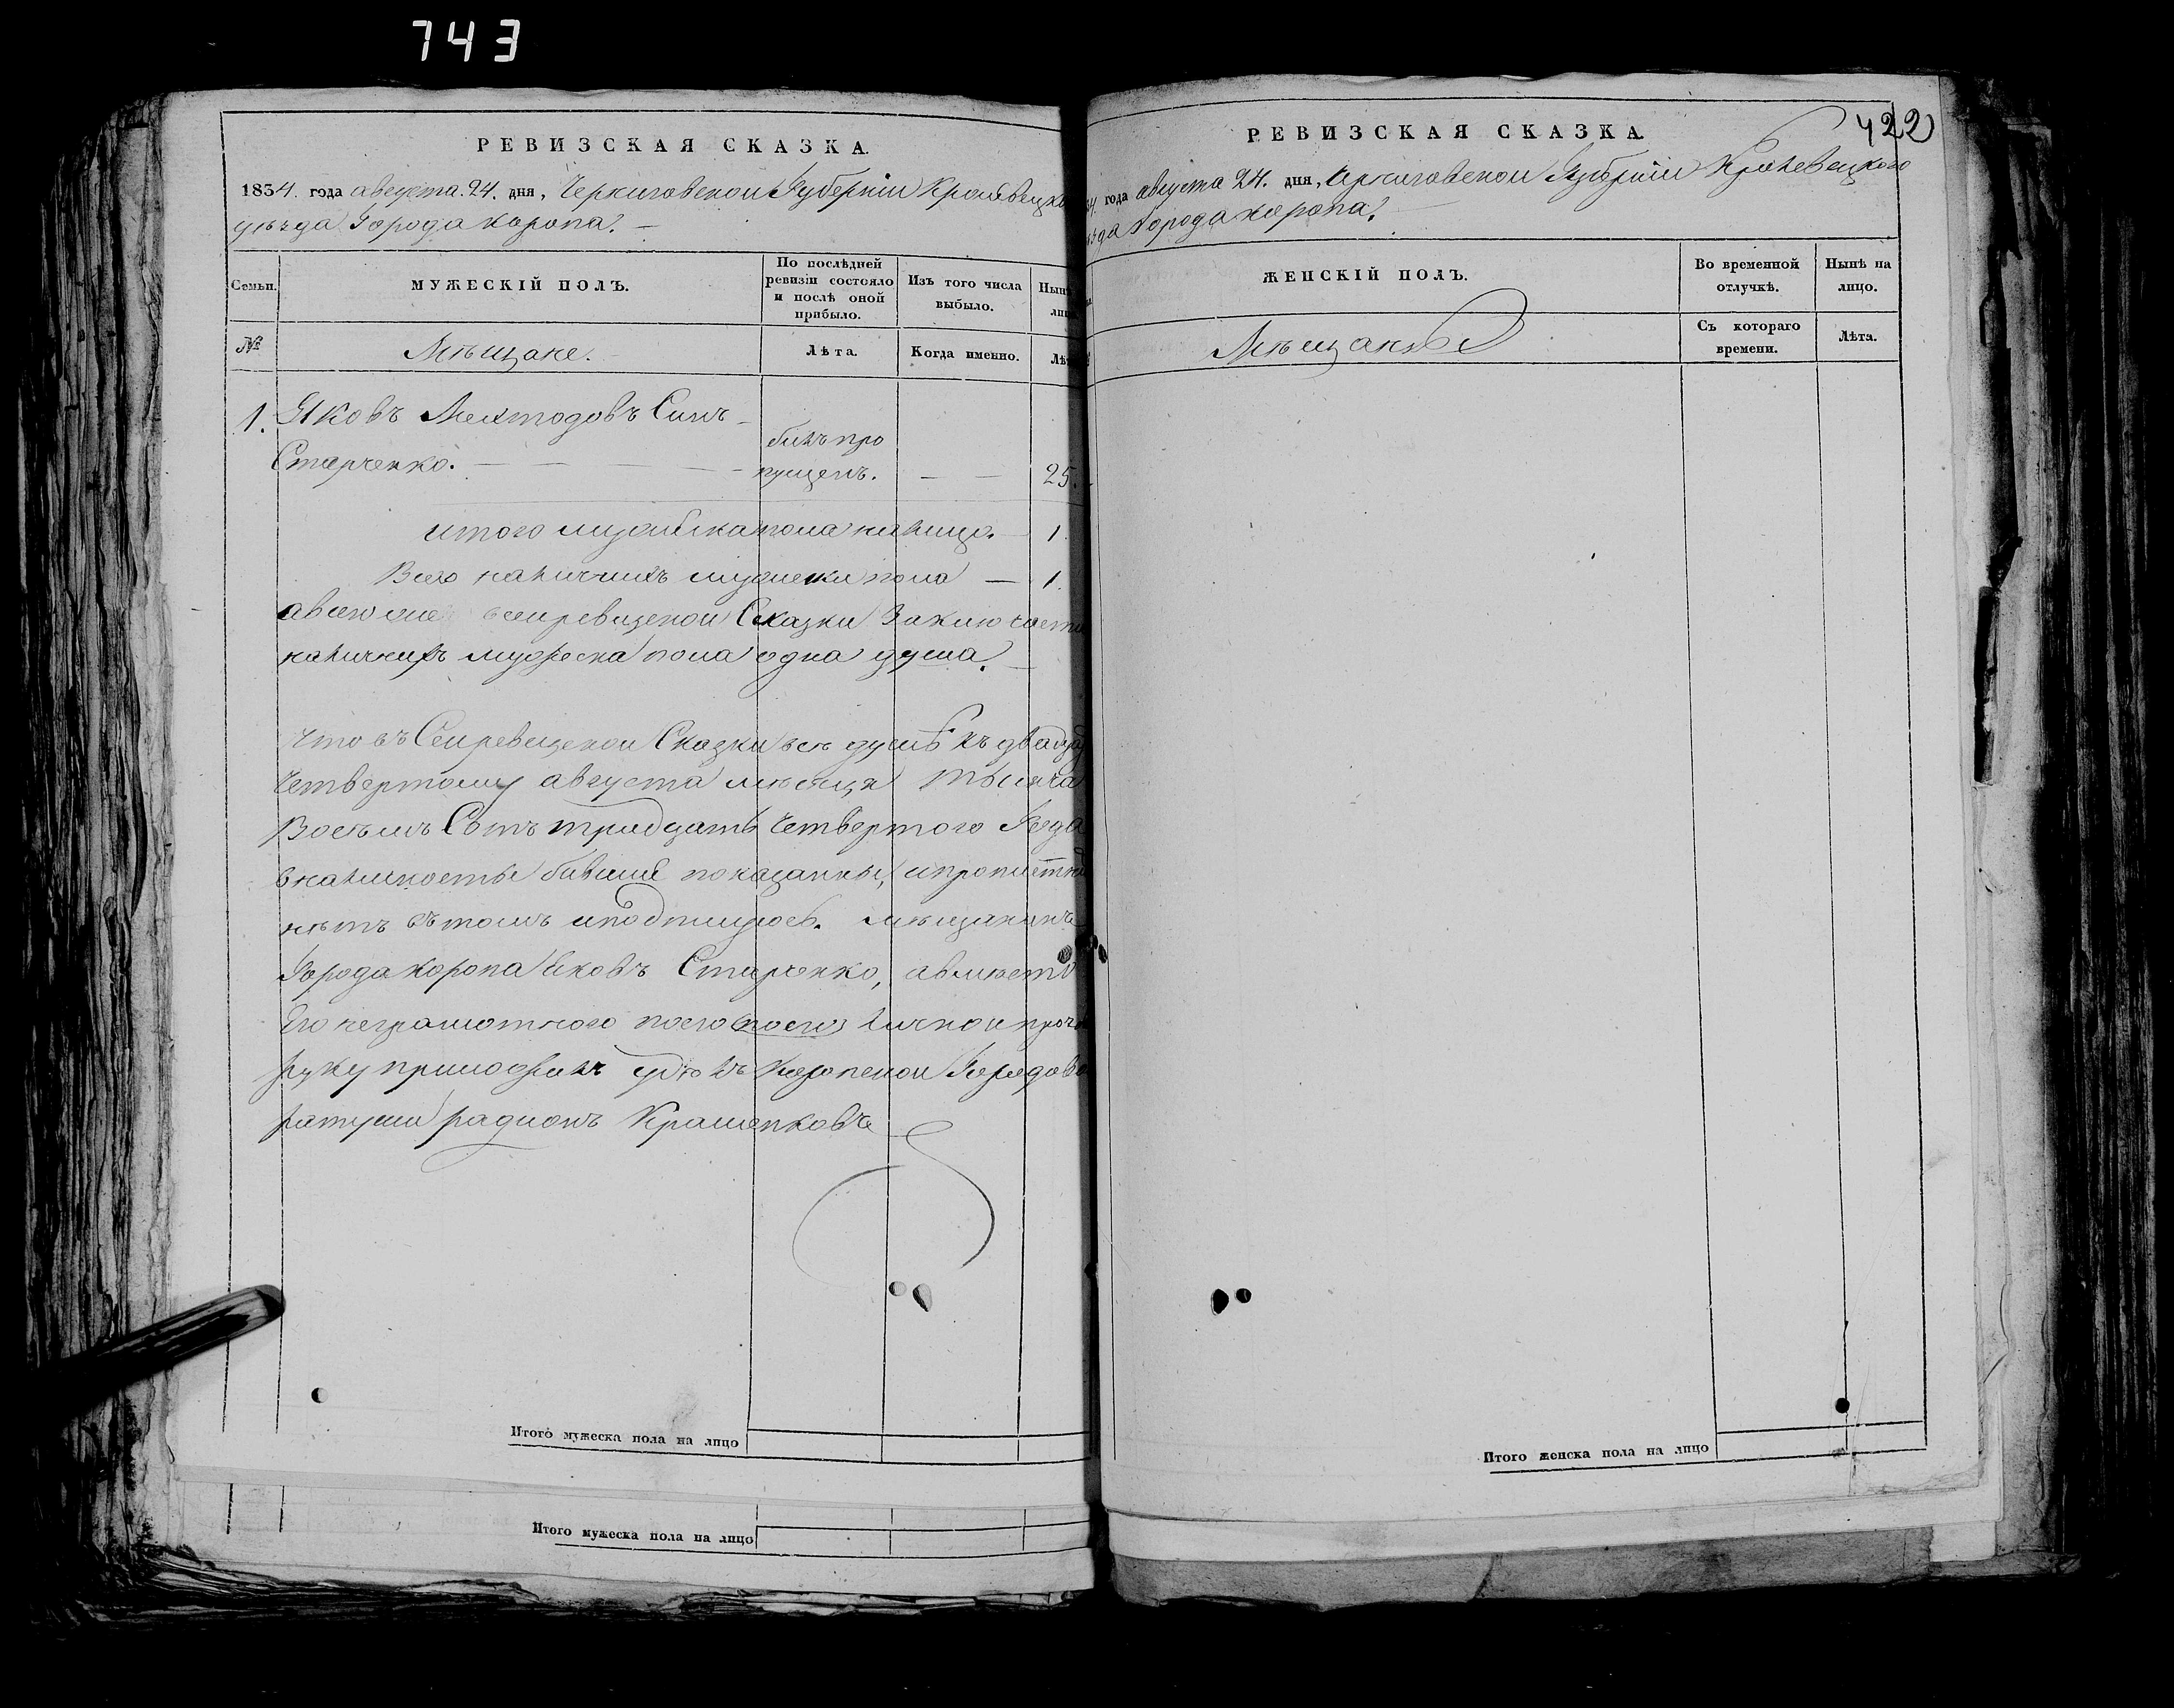 743
РЕВИЗСКАЯ СКАЗКА.
1834. года августа 24. дня, Черниговской Губернии Кролевецк
уѣзда Города Коропа.
Семьи.
МУЖЕСКІЙ ПОЛЪ.
По послѣдней ревизіи состояло и послѣ оной прибыло.
Изъ того числа выбыло.
Нын
лиц
№
Мѣщане.
Лѣта.
Когда именно.
Лѣ
1. Яковъ Мехтодовъ Синъ
Старченко.
билъ про
пущенъ.
25.
итого мужеска пола на лицо. 1.
Всего наличнихъ мужеска пола — 1.
а всего сей ревизской Сказки
наличнихъ мужеска пола одна душа.
Что въ Сей ревизской Сказки всѣ душѣ къ двадца
четвертому августа мѣсяца тысяча
Восемъ Сотъ тридцать четвертого Года
в наличности бившие показанны, и прописн
нѣтъ въ томъ и подпишуюсь. мѣщанинъ
Города Коропа Яковъ Старченко, а вмѣсто
Его неграмотного по его лично и
руку приложилъ Коропской Городово
ратуши радионъ Крашенковъ
Итого мужеска пола на лицо
Итого мужеска пола на лицо
422
РЕВИЗСКАЯ СКАЗКА.
4. года августа 24. дня, Черниговской Губернии Кролевецкого
ѣзда Города Коропа.
ЖЕНСКІЙ ПОЛЪ.
Во временной отлучкѣ.
Нынѣ на лицо.
Мѣщанки
Съ котораго времени.
Лѣта.
Итого женска пола на лицо